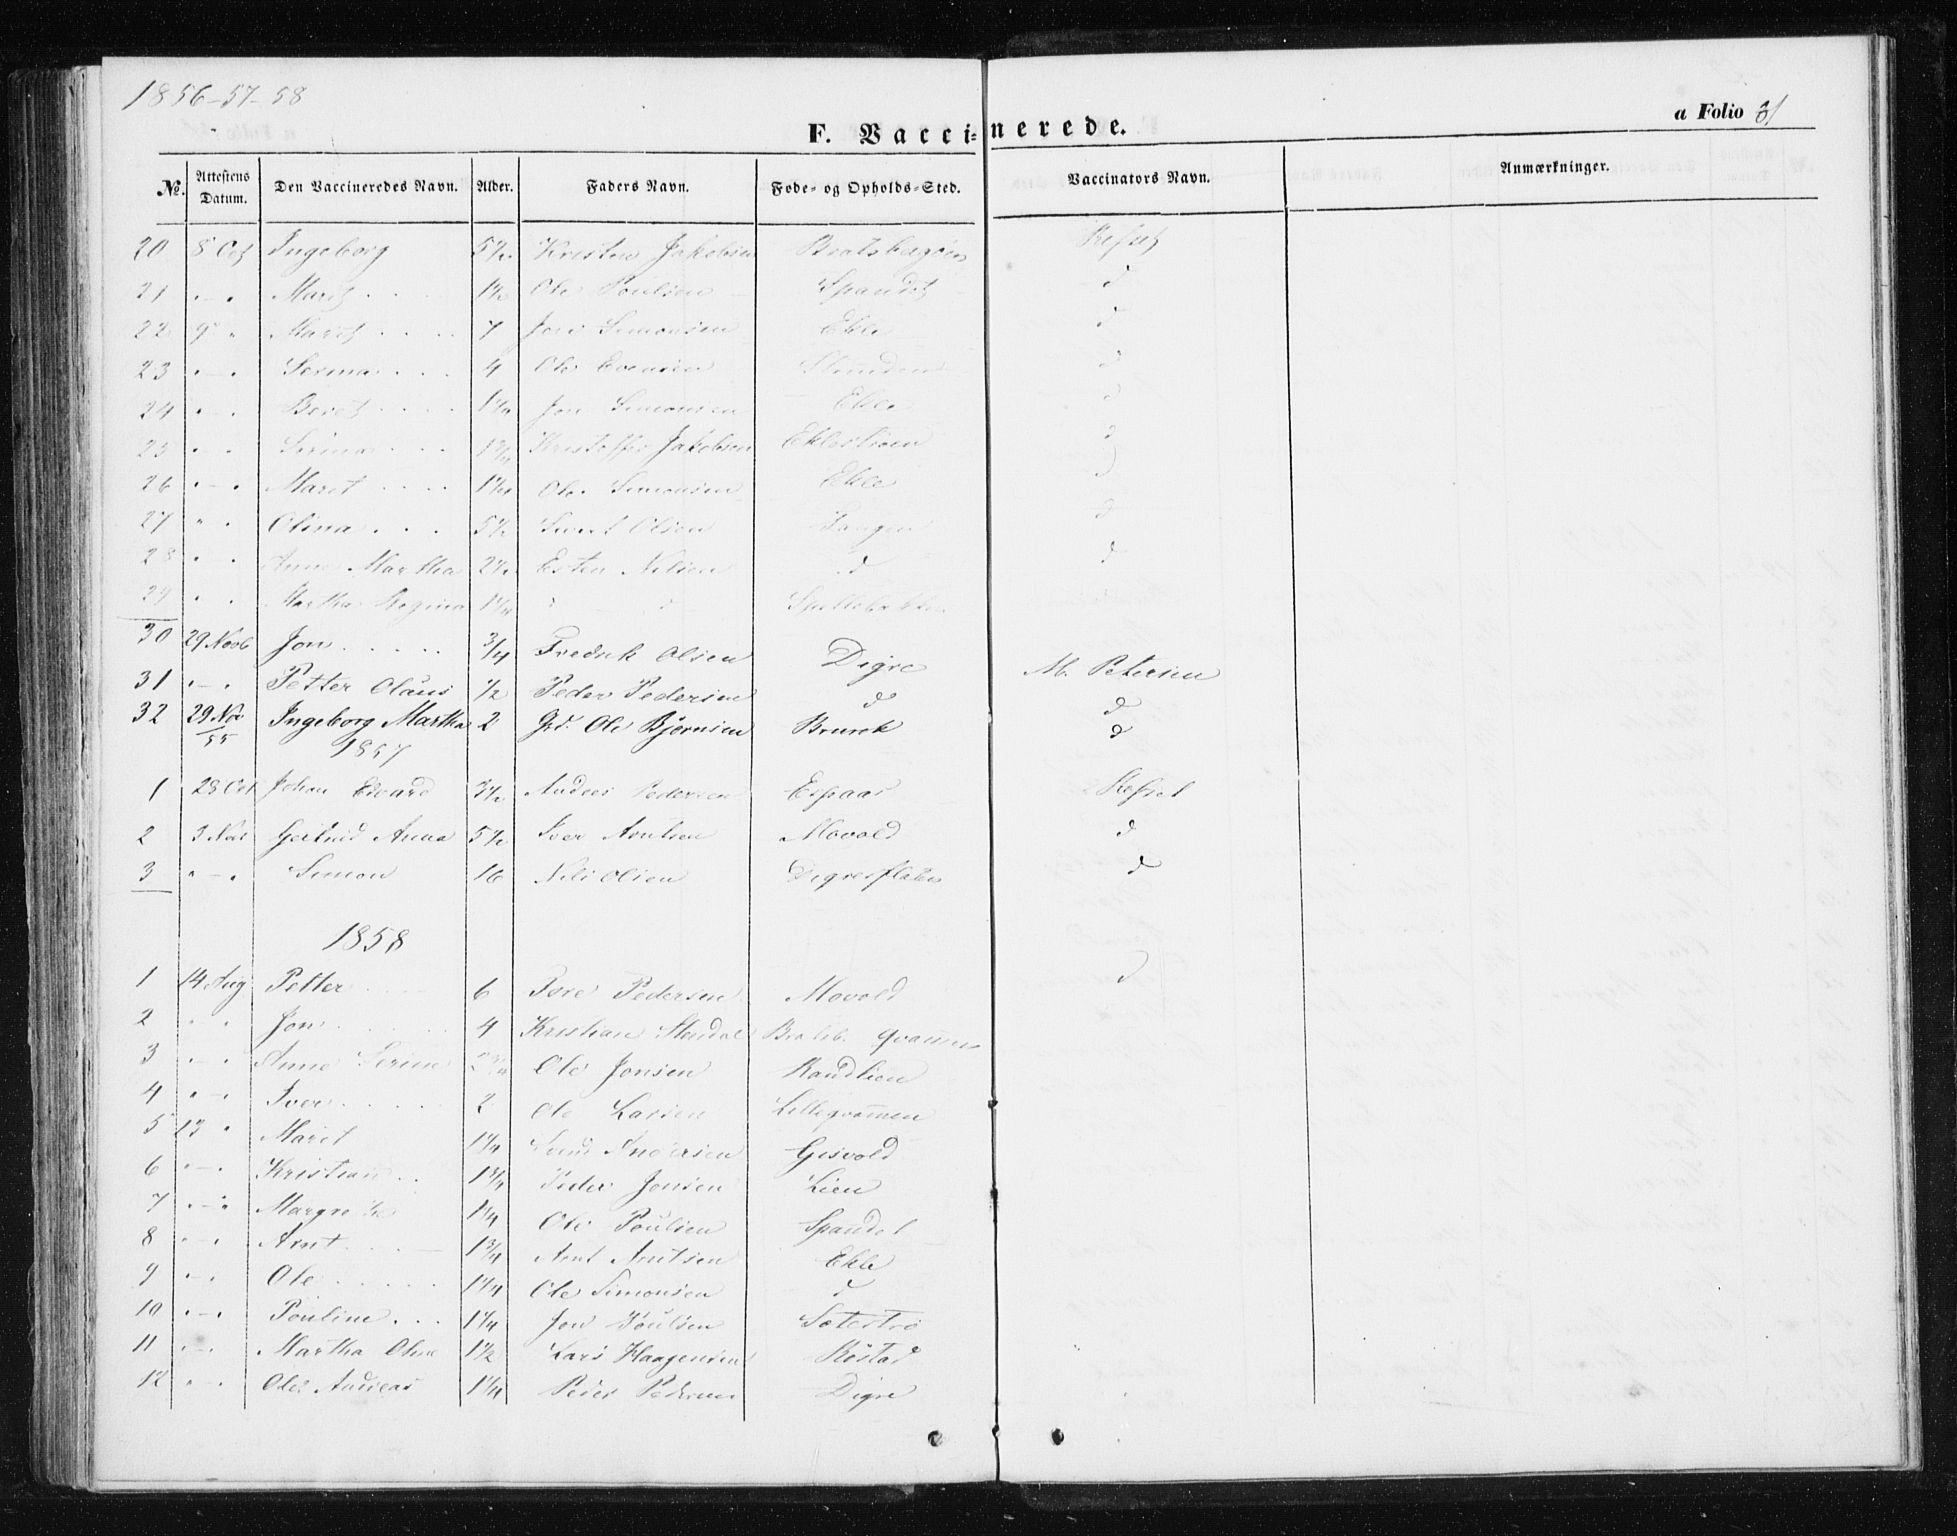 1856-57-58
a Folio 31
F. Vaccinerede.
No. Attestens Datum. Den Vaccineredes Navn. Alder. Faders Navn. Føde- og Opholds-Sted. Vaccinators Navn. Anmærkninger.
20 8 Oct Ingeborg 5 1/2 Kristen Jakobsen Refset
21 " - " Marit 1 1/2 Ole Poulsen Spandet d
22 9 " Marit 7 Jon Simonsen Ekle d
23 " - " Serina 4 Ole Evensen d
24 " - " Beret 1 1/4 Jon Simonsen Ekle d
25 " - " Serina 1 3/4 Kristoffer Jakobsen d
26 " - " Marit 1 1/4 Ole Simonsen Ekle d
27 " " Olina 5 1/2 Sivert Olsen d
28 " - " Anne Martha 2 1/2 Esten Nilsen d d
29 " " Martha Regina 1 1/4 " d d
30 29 Novb Jon 3/4 Fredrik Olsen Digre M. Petersen
31 " - " Petter Olaus 1/2 Peder Pedersen d d
32 29 Nov 55 Ingeborg Martha 2 Grd. Ole Bjørnsen Brurok d
1857
1 28 Oct Johan Edvard 3 1/2 Andres Pedersen Espaas Refset
2 3 Nov Gertrud Anna 5 1/2 Iver Arntsen Movold d
3 " - " Simon 16 Nils Olsen Digresflaten d
1858
1 14 Aug Petter 6 Tore Pedersen Movold d
2 " " Jon 4 Kristian Stendal Bratsb. Qvammen
3 " - " Anne Serine 2 3/4 Ole Jonsen Randlien
4 " - " Iver 2 Ole Larsen Lilleqvammen
5 13 " Marit 1 1/4 Svend Andersen Gisvold
6 " - " Kristian 1 3/4 Peder Jonsen Lien
7 " - " Margrethe 1 1/4 Ole Poulsen Spandet
8 " - " Arnt 1 3/4 Arnt Arntsen Ekle
9 " - " Ole 1 1/4 Ole Simonsen d
10 " - " Pouline 1 1/4 Jon Poulsen
11 " - " Martha Oline 1 1/2 Lars Haagensen Røstad
12 " - " Ole Andreas 1 1/4 Peder Pedersen Digre